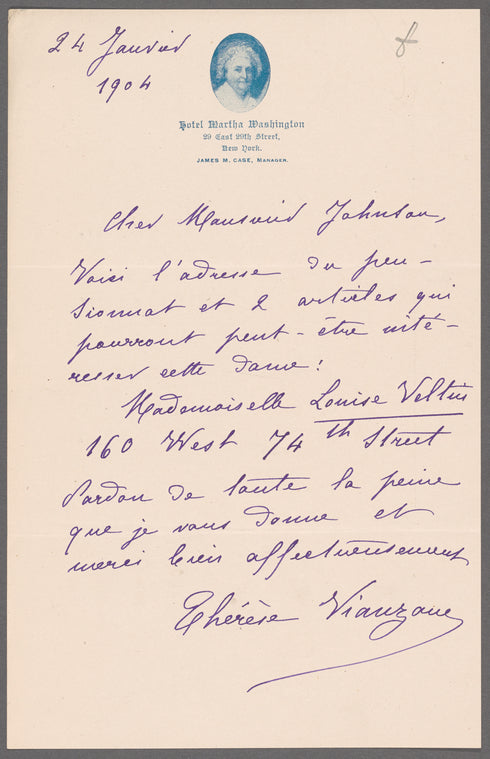 24 Janvier
1904
Hotel Martha Washington
29 East 29th Street,
New York.
JAMES M. CASE, MANAGER.
Cher Monsieur Johnson,
Voici l'adresse du pen-
sionnat et 2 articles qui
pourront peut-être inté-
resser cette dame!
Mademoiselle Louise Veltin
160 West 74th Street
Pardon de toute la peine
que je vous donne et
merci bien affectueusement
Thérèse Vianzone